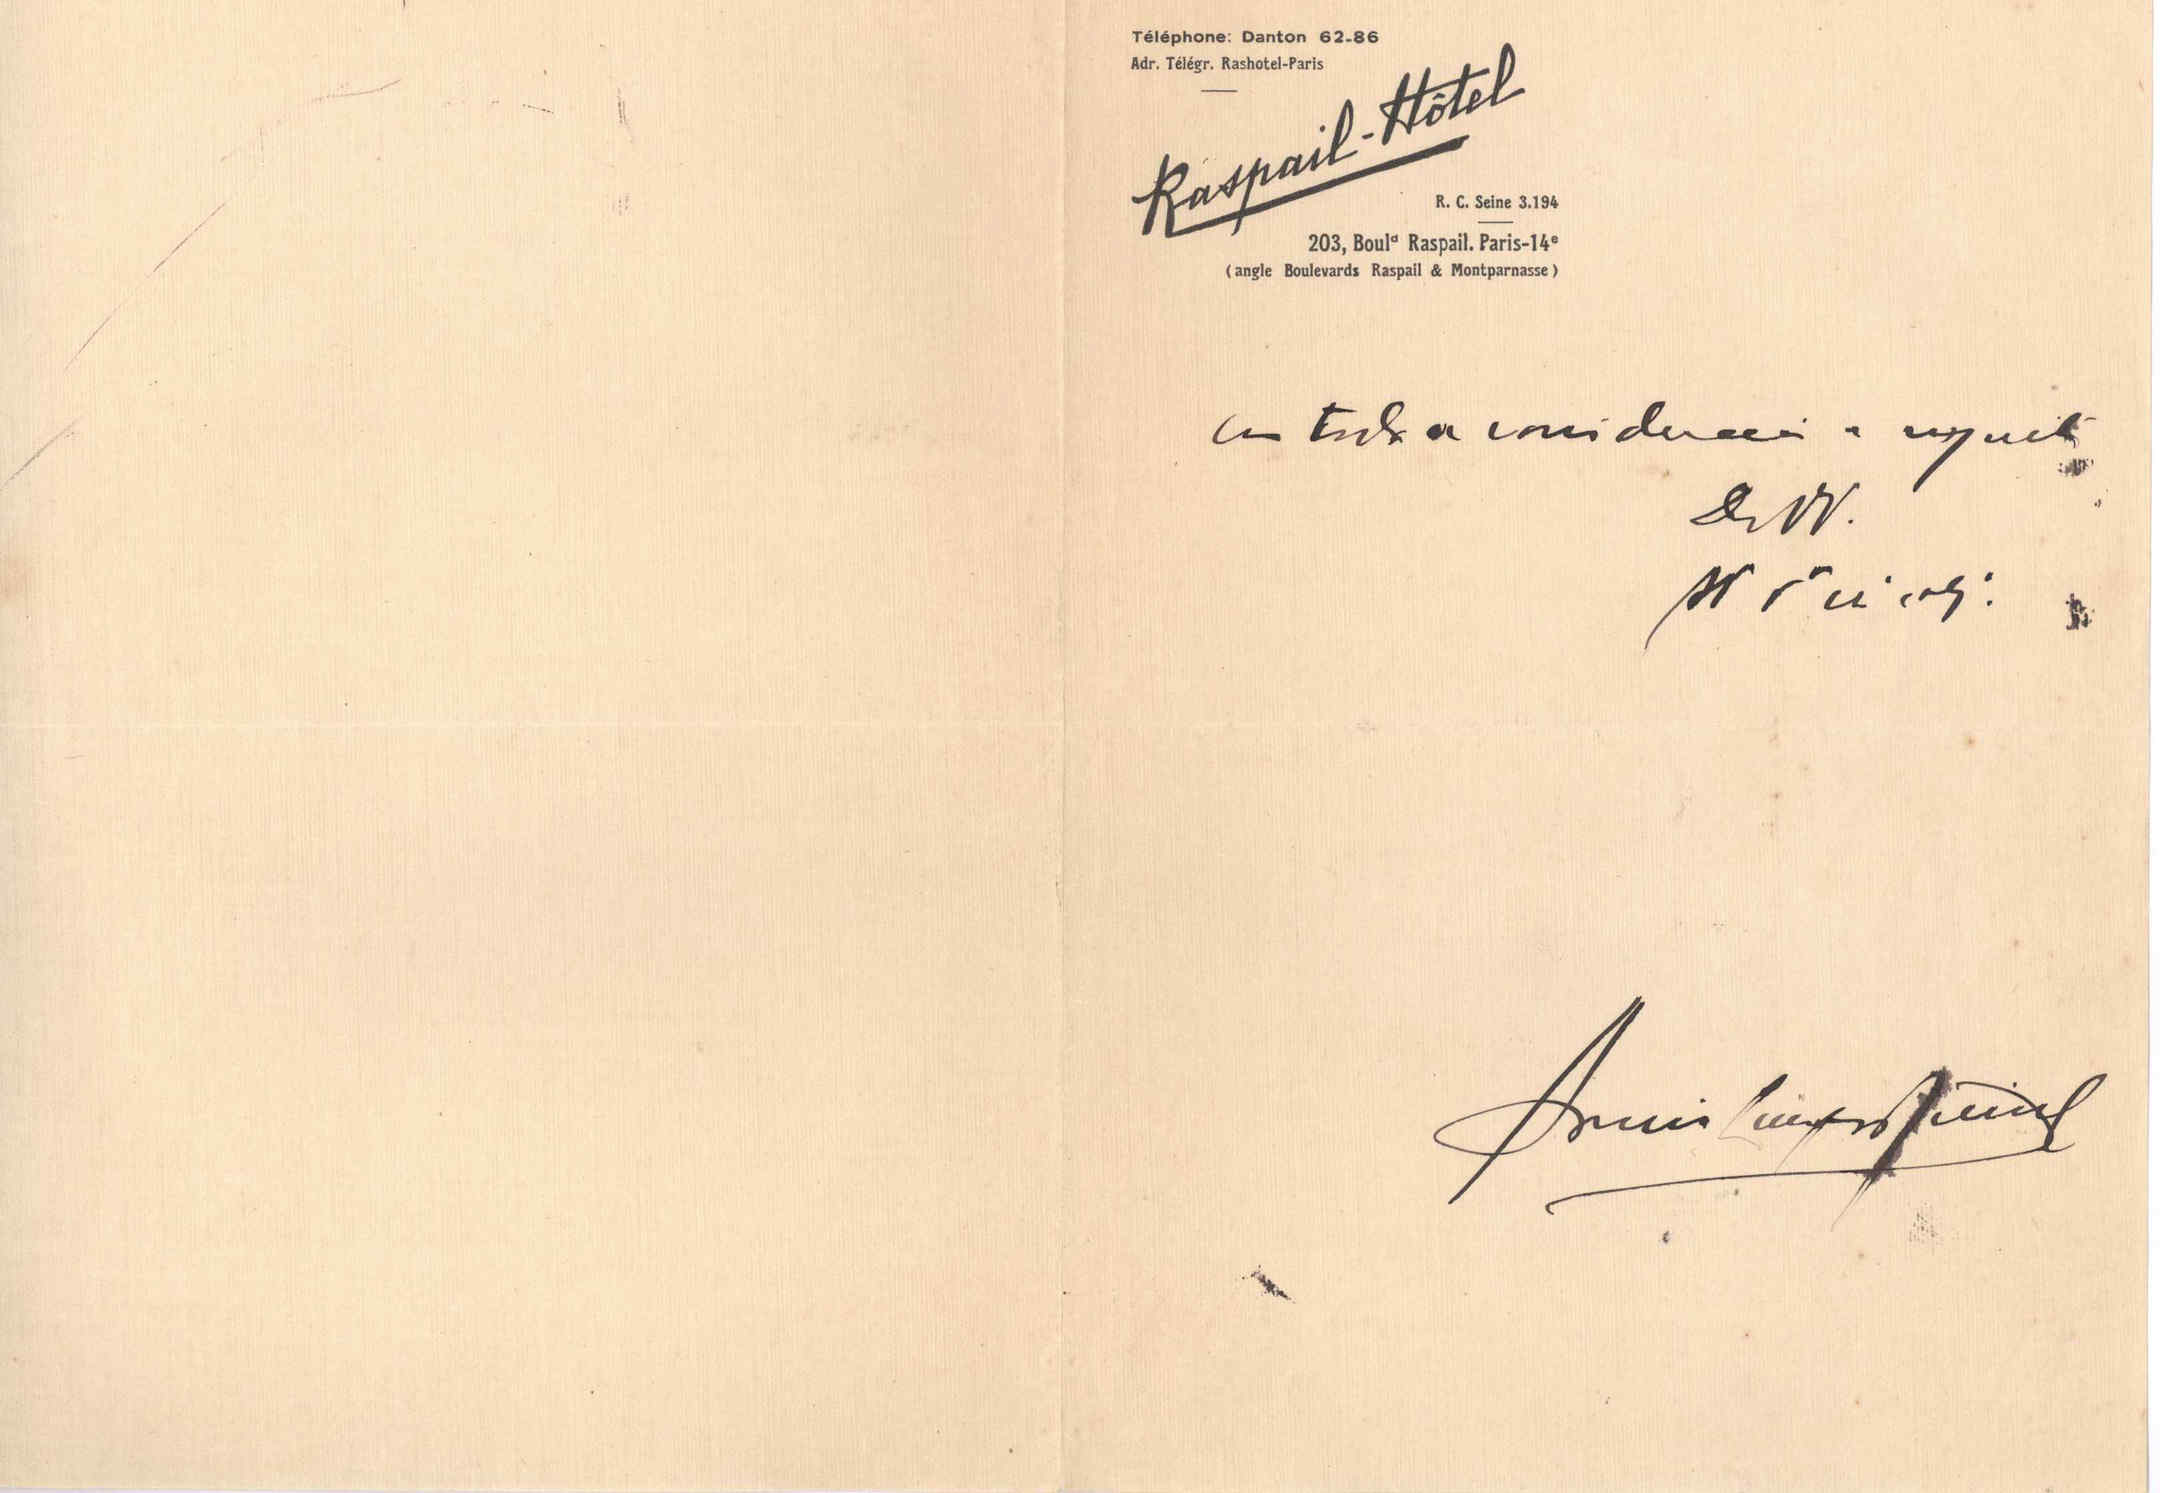 Téléphone: Danton 62-86
Adr. Télégr. Rashotel-Paris
Raspail-Hôtel
R. C. Seine 3.194
203, Boulᵈ Raspail. Paris-14ᵉ
(angle Boulevards Raspail & Montparnasse)
com toda a consideração e respeito
De V.